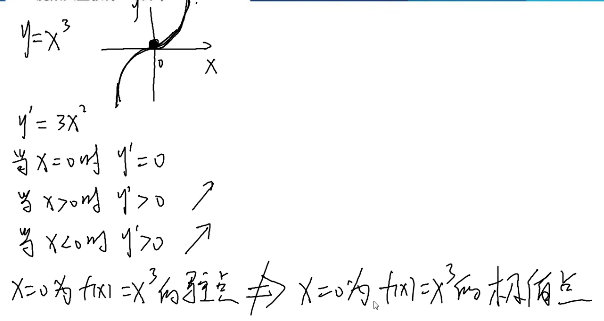 y
y=x³
0
x
y'=3x²
当x=0时 y'=0
当x>0时 y'>0 ↗
当x<0时 y'>0 ↗
x=0为f(x)=x³的驻点 ⇏ x=0为f(x)=x³的极值点